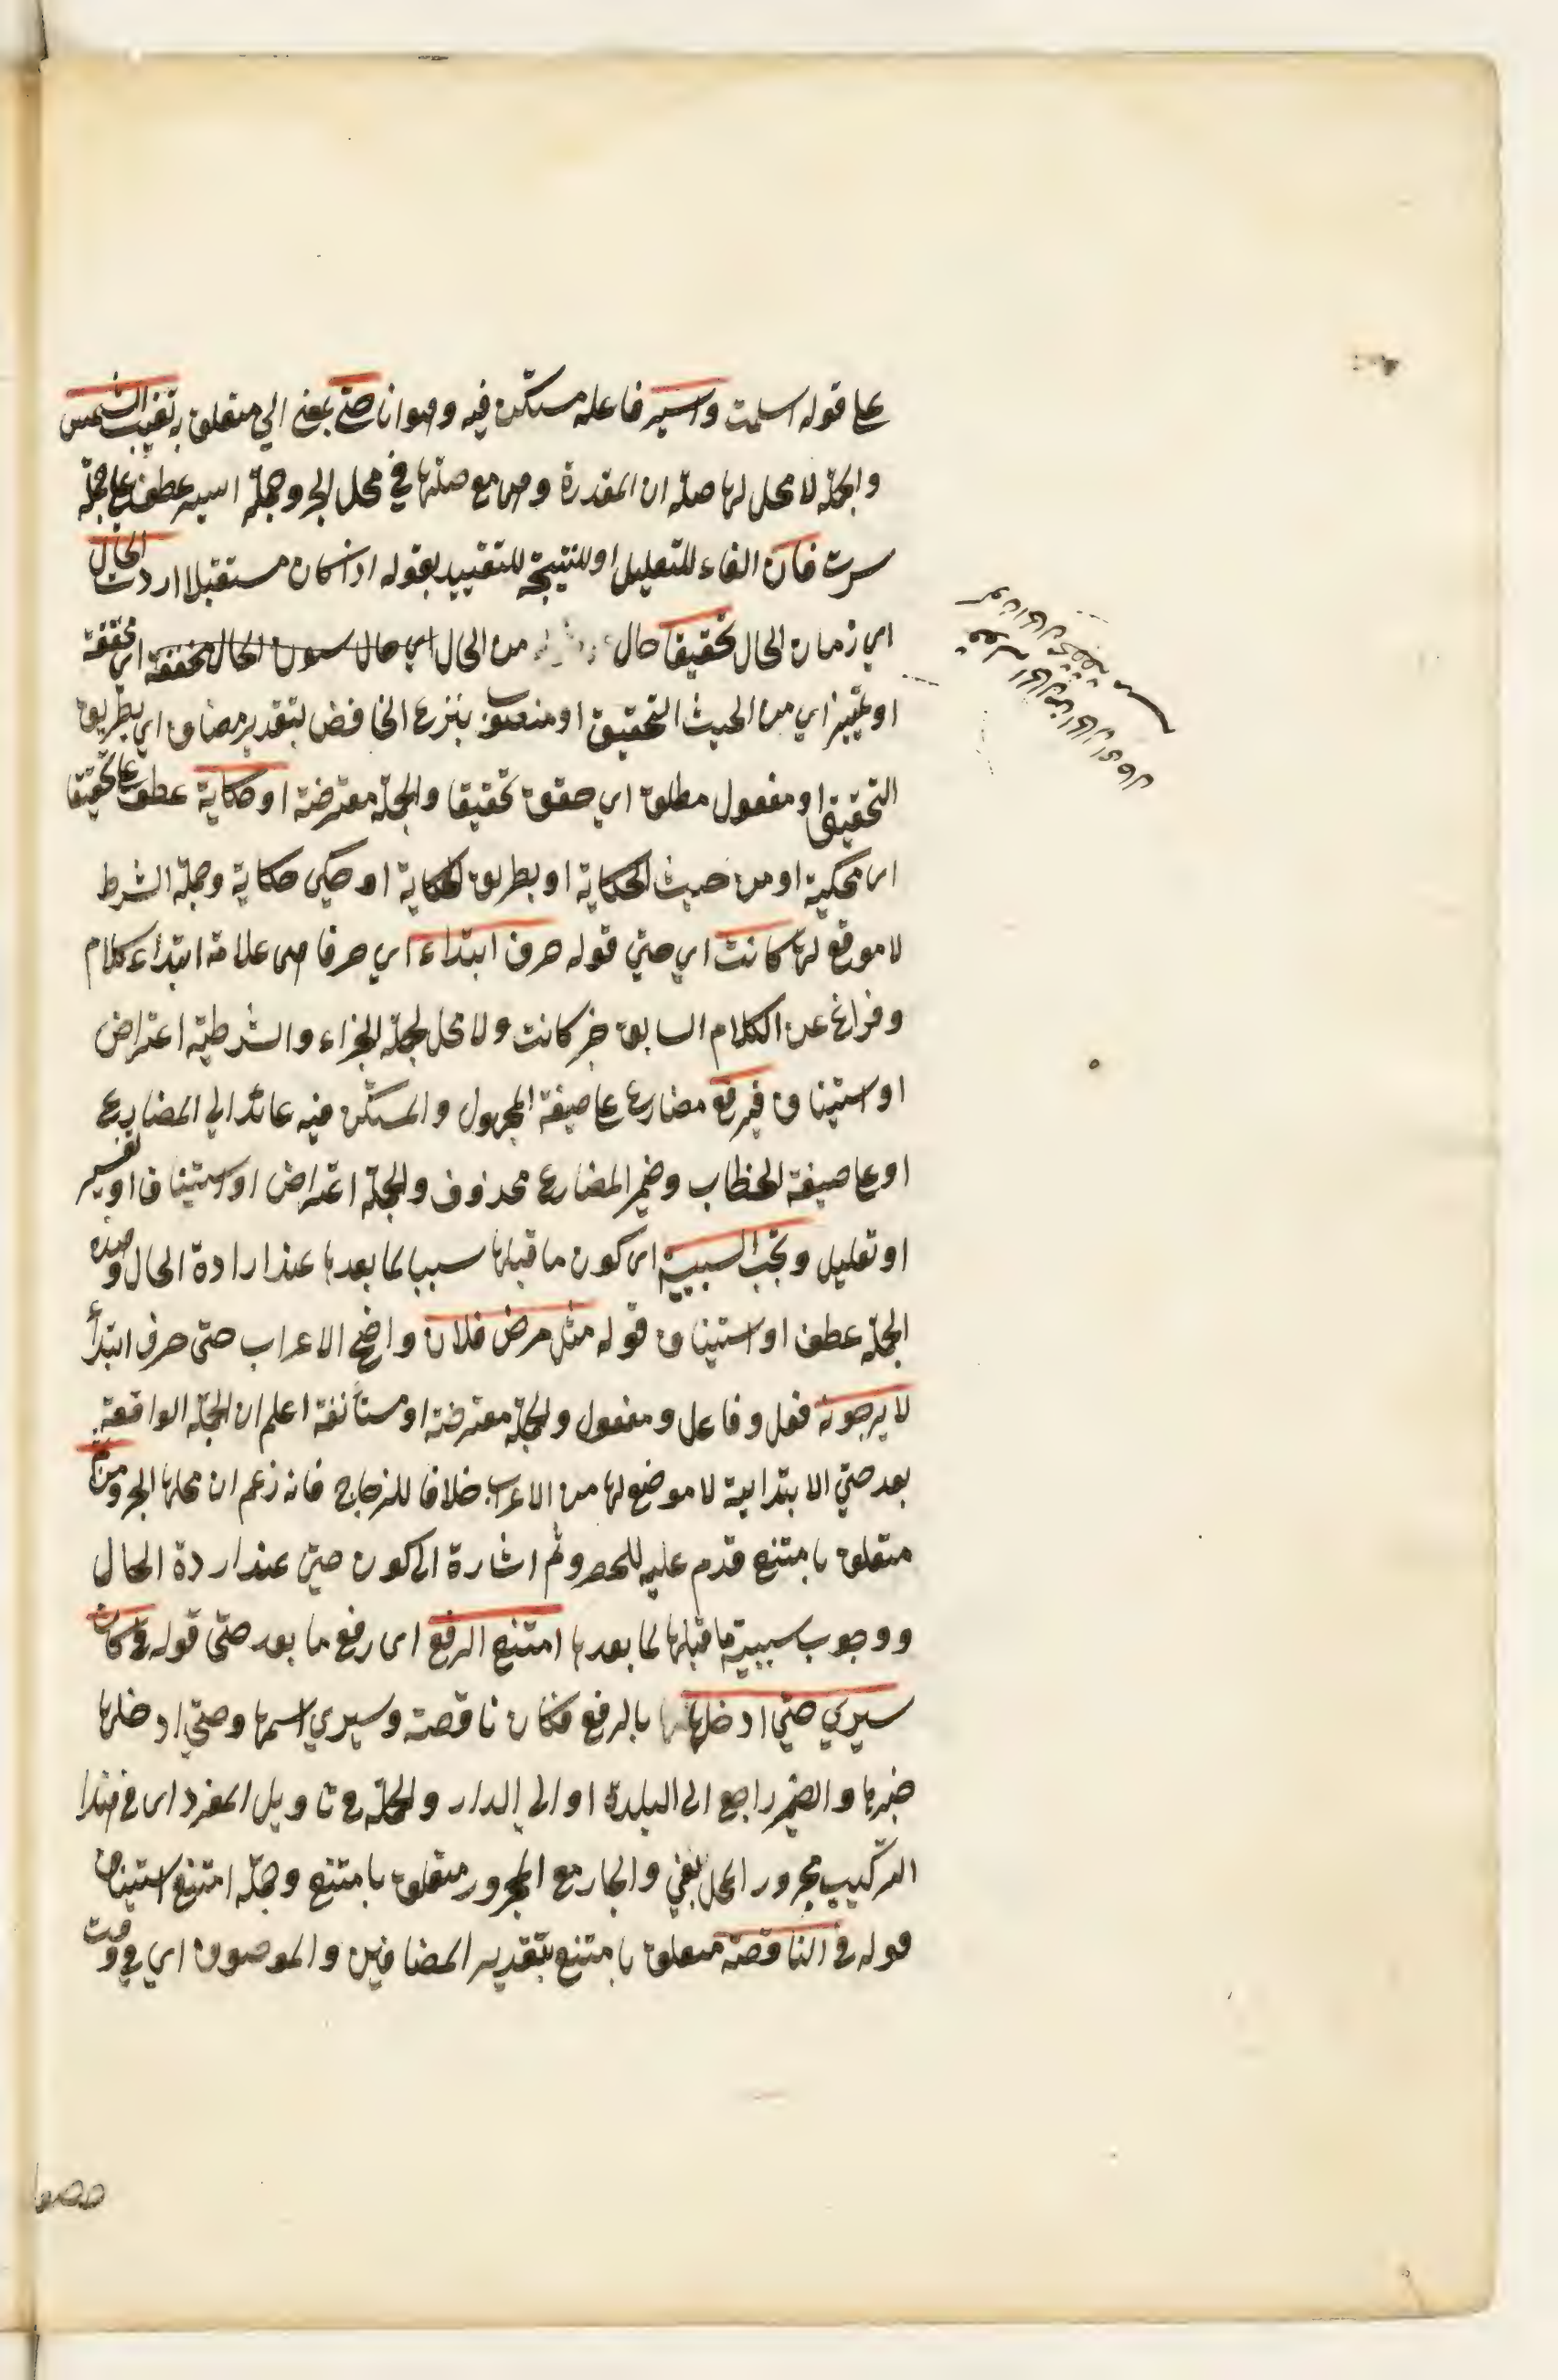 على قوله اسلمت واسير فاعله مستكن فيه وهو انا حتى بمعنى الى متعلق به تغيب الشمس
والجملة لا محل لها صلة ان المقدرة وهى مع صلتها في محل الجر وجملة اسير عطف على جملة
سرت فان الفاء للتعليل او للنتيجة للتقييد بقوله اذا كان مستقبلا اردت الحال
اي زمان الحال تحقيقا حال من الحال اي حال كون الحال محققة اي محققة
او تمييز اي من الحيث التحقيق او منصوب بنزع الخافض بتقدير مضاف اي بطريق
التحقيق او مفعول مطلق اي حقق تحقيقا والجملة معترضة او حكاية عطف على تحقيقا
اى محكية او من حيث الحكاية او بطريق الحكاية او حكى حكاية وجملة الشرط
لا موقع لها كانت اي حتى قوله حرف ابتداء اي حرفا هى علامة ابتداء كلام
وفراغ عن الكلام السابق خبر كانت ولا محل لجملة الجزاء والشرطية اعتراض
او استيناف فيرفع مضارع على صيغة المجهول والمستكن فيه عائد الى المضارع
او على صيغة الخطاب وضمير المضارع محذوف والجملة اعتراض او استيناف او تفسير
او تعليل وتجب السببية اى كون ما قبلها سببا لما بعدها عند ارادة الحال وهذه
الجملة عطف او استيناف قوله مثل مرض فلان واضح الاعراب حتى حرف ابتداء
لا يرجونه فعل وفاعل ومفعول والجملة معترضة او مستأنفة اعلم ان الجملة الواقعة
بعد حتى الابتدائية لا موضع لها من الاعراب خلافا للزجاج فانه زعم ان محلها الجر ومن ثم
متعلق بامتنع قدم عليه للحصر وثم اشارة الى كون حتى عند اردة الحال
ووجوب سببية ما قبلها لما بعدها امتنع الرفع اى رفع ما بعد حتى قوله في كان
سيري حتى ادخلها بالرفع فكان ناقصة وسيري اسمها وحتى ادخلها
خبرها والضمير راجع الى البلدة او الى الدار والجملة في تاويل المفرد اى في هذا
التركيب مجرور المحل بفي والجار مع المجرور متعلق بامتنع وجملة امتنع استيناف
قوله في الناقصة متعلق بامتنع بتقدير المضافين والموصوف اي في وقت